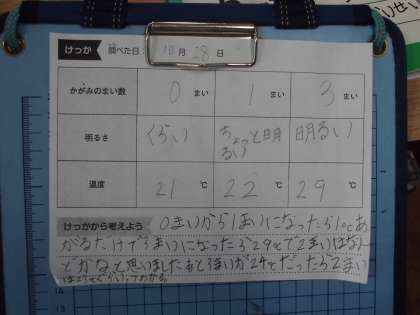 けっか 調べた日: 10月28日
かがみのまい数 0まい 1まい 3まい
明るさ くらい ちょっと明るい 明るい
温度 21℃ 22℃ 29℃
けっかから考えよう 0まいから1まいになったら1℃あ
がるだけで3まいになったら29℃で2まいはなん
どかなと思いましたあと3まいが29℃だったら2まい
は